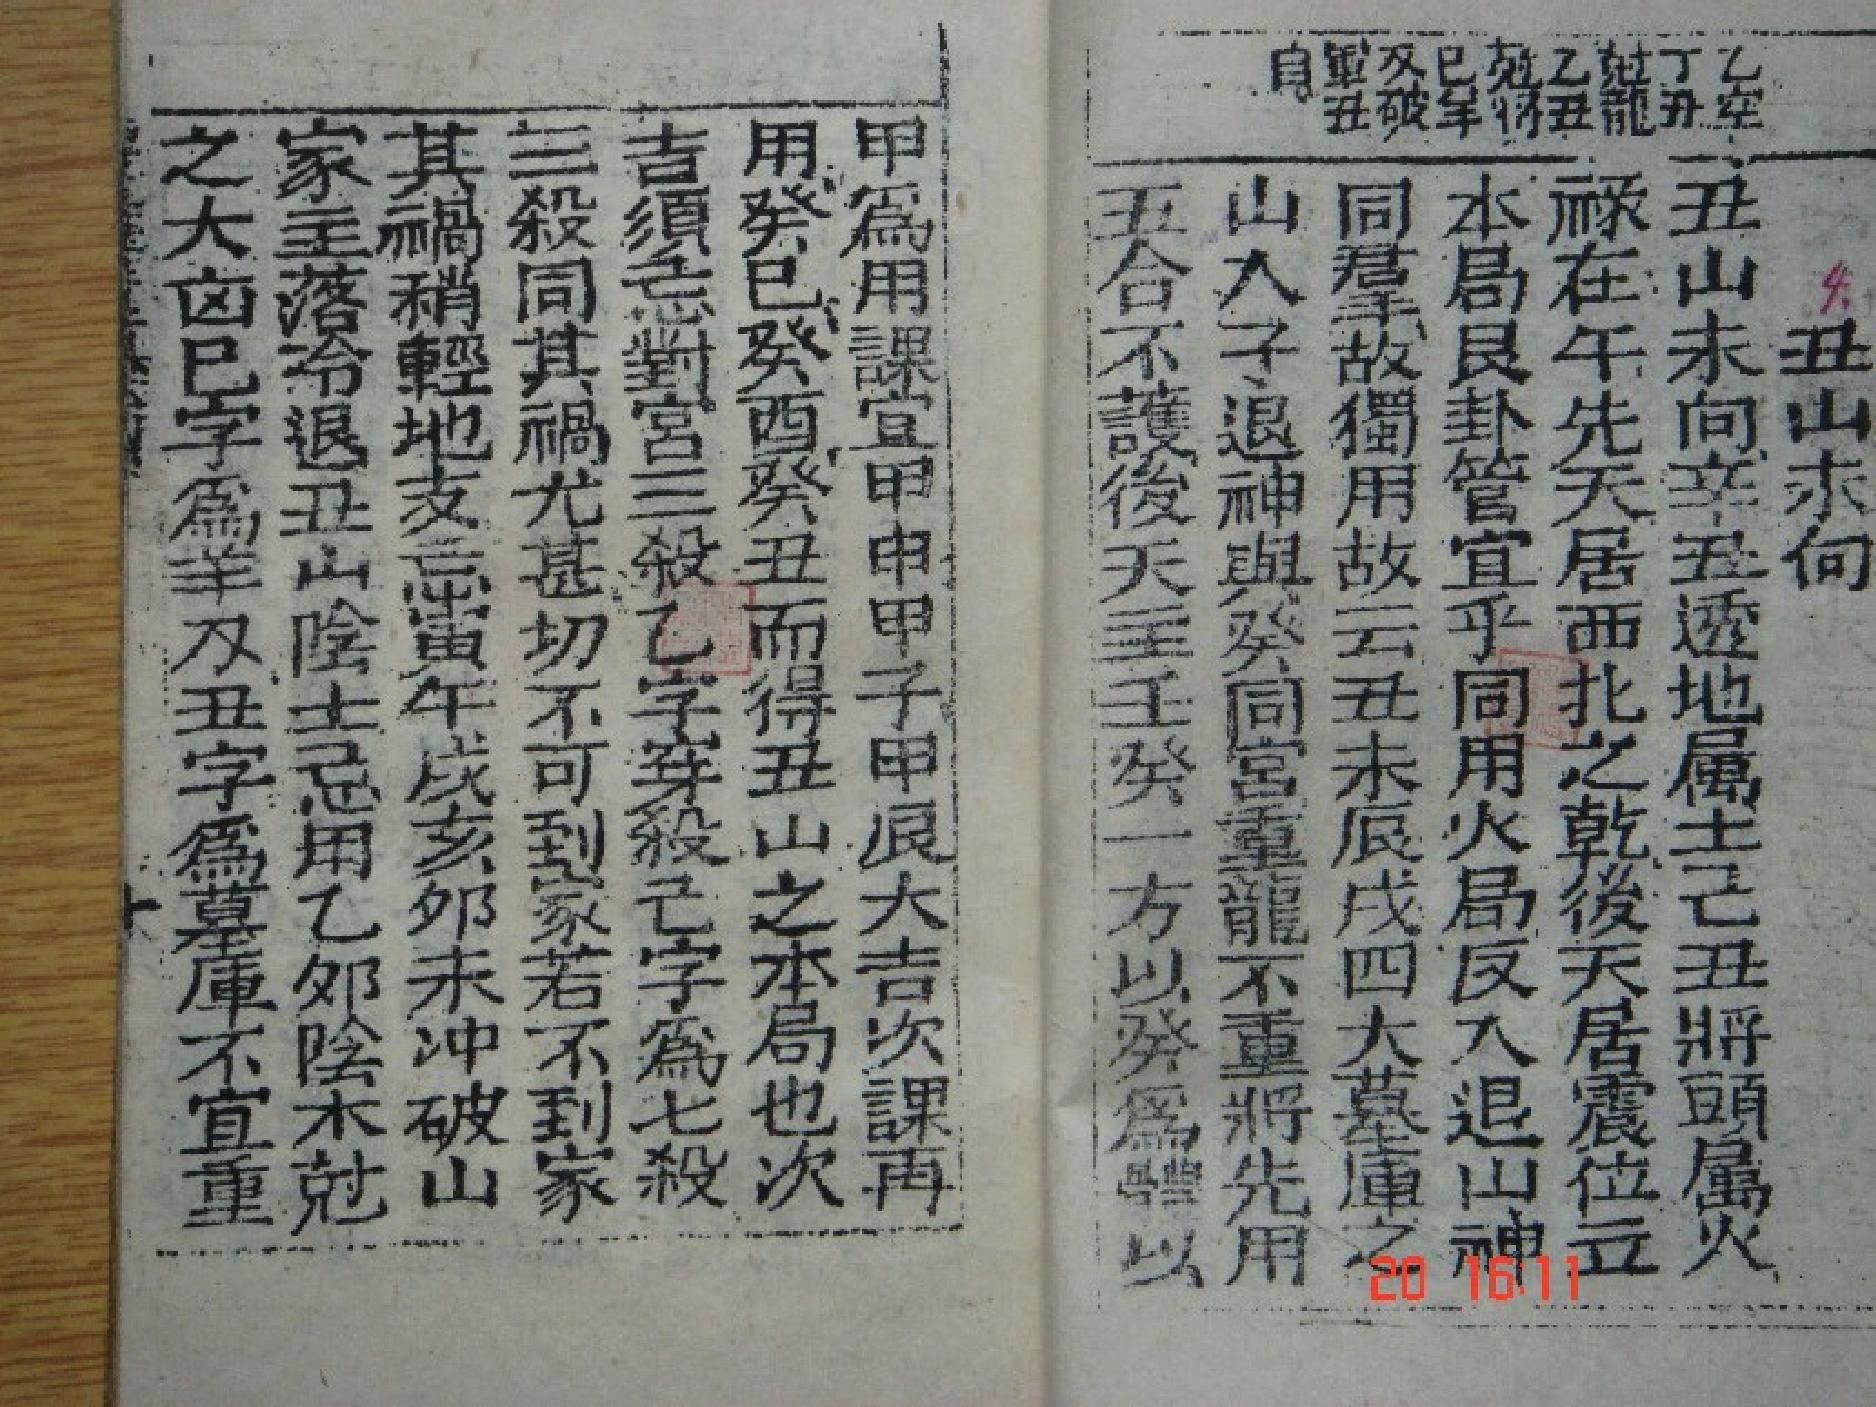 4.
丑山未向
乙牢
丁丑
尅龍
乙丑
尅將
巳羊
及破
軍丑
自
丑山未向辛丑透地属土己丑將頭属火
祿在午先天居西北之乾後天居震位立
本局艮卦管宜乎同用火局反入退山神
同羣故獨用故云丑未辰戌四大墓庫之
山入子退神與癸同宮重龍不重將先用
五合不護後天主壬癸一方以癸爲體以
甲爲用課宜甲申甲子甲辰大吉次課再
用癸巳癸酉癸丑而得丑山之本局也次
吉須忘對宮三殺乙字穿殺己字爲七殺
三殺同其禍尤甚切不可到家若不到家
其禍稍輕地支忌寅午戌亥卯未冲破山
家主落冷退丑山陰土忌用乙卯陰木尅
之大凶巳字爲羊刃丑字爲墓庫不宜重
20 16:11